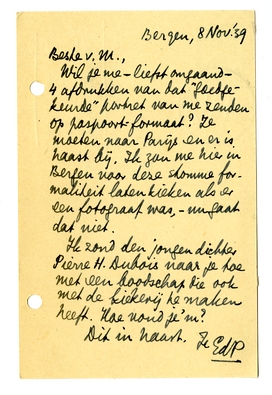 Bergen, 8 Nov. '39
Beste v. M.,
Wil je me - liefst omgaand -
4 afdrukken van dat "goedge-
keurde" portret van me zenden
op paspoort-formaat? Ze
moeten naar Parijs en er is
haast bij. Ik zou me hier in
Bergen voor deze stomme for-
maliteit laten kieken als er
een fotograaf was, - nu gaat
dat niet.
Ik zond den jongen dichter
Pierre H. Dubois naar je toe
met een boodschap die ook
met de kiekerij te maken
heeft. Hoe vond je 'm?
Dit in haast. Je EdP